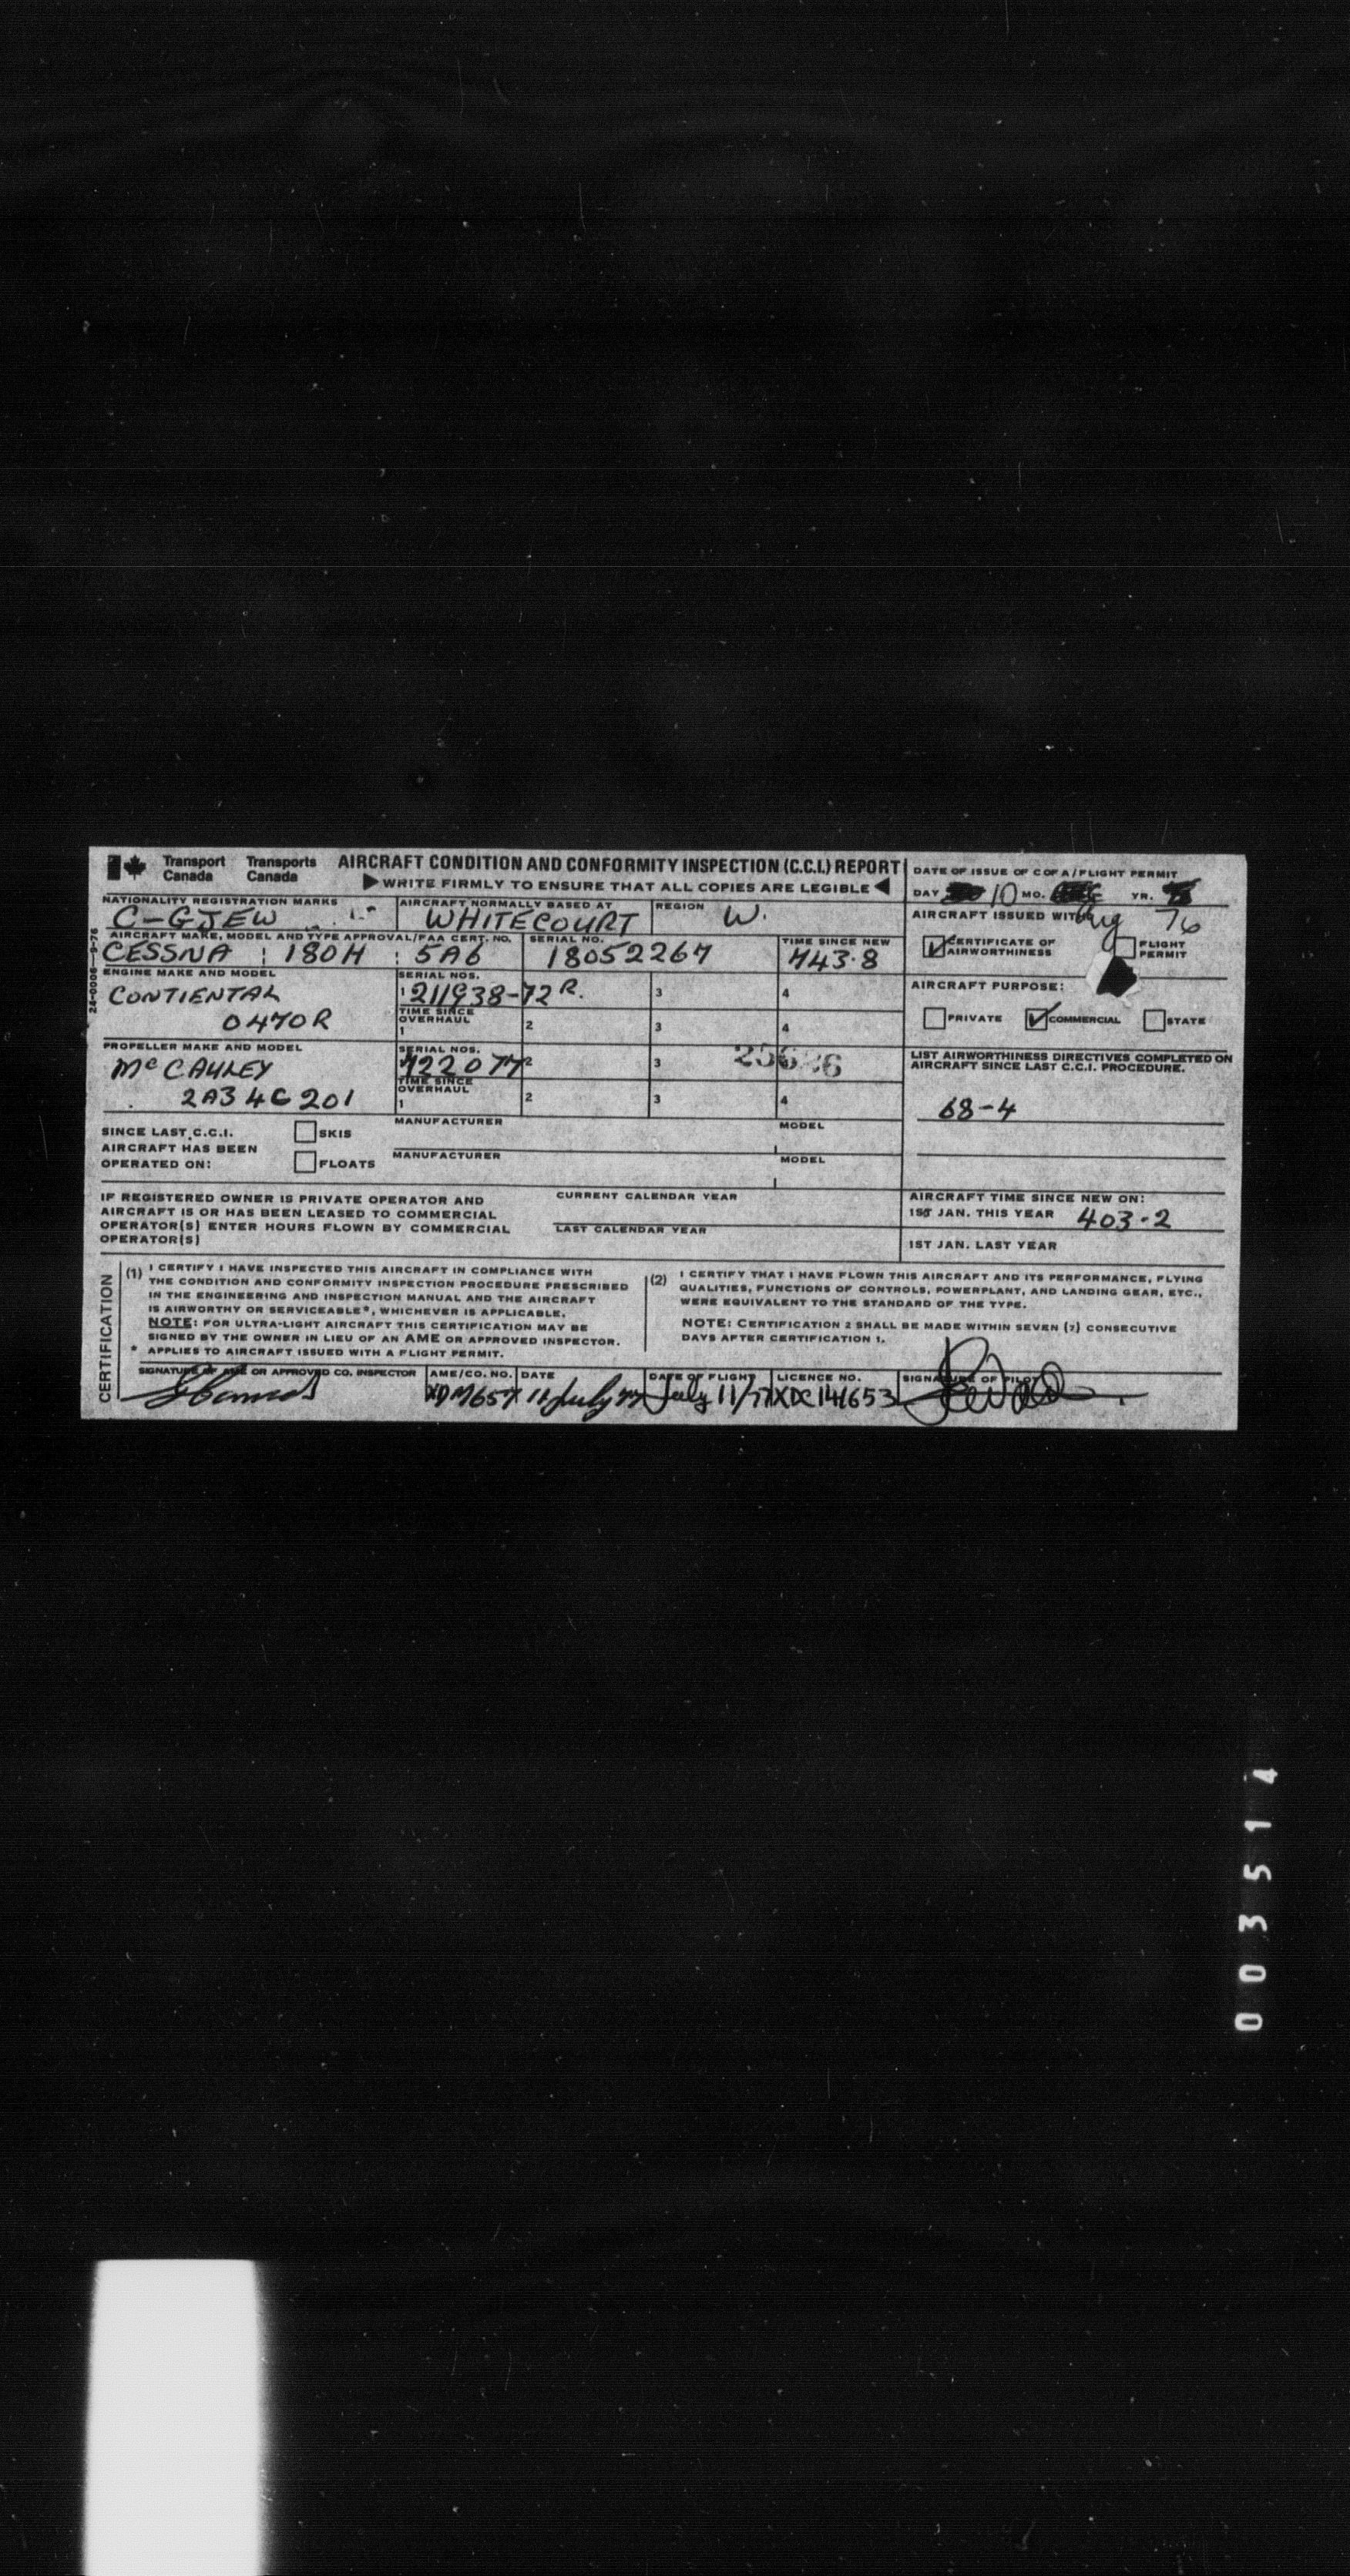 Transport Canada Transports Canada AIRCRAFT CONDITION AND CONFORMITY INSPECTION (C.C.I.) REPORT
WRITE FIRMLY TO ENSURE THAT ALL COPIES ARE LEGIBLE
DATE OF ISSUE OF C OF A/FLIGHT PERMIT
DAY 10 MO. Aug YR. 76
NATIONALITY REGISTRATION MARKS
C-GJEW
AIRCRAFT NORMALLY BASED AT
WHITECOURT
REGION
W.
AIRCRAFT ISSUED WITH
CERTIFICATE OF AIRWORTHINESS
FLIGHT PERMIT
AIRCRAFT MAKE, MODEL AND TYPE APPROVAL/FAA CERT. NO.
CESSNA 180H 5A6
SERIAL NO.
18052267
TIME SINCE NEW
443.8
24-0006 9-76
ENGINE MAKE AND MODEL
CONTIENTAL
O470R
SERIAL NOS.
1 211938-72R. 3 4
TIME SINCE OVERHAUL
1 2 3 4
AIRCRAFT PURPOSE:
PRIVATE COMMERCIAL STATE
PROPELLER MAKE AND MODEL
McCAULEY
2A34C201
SERIAL NOS.
722077 2 3
TIME SINCE OVERHAUL
1 2 3 4
LIST AIRWORTHINESS DIRECTIVES COMPLETED ON
AIRCRAFT SINCE LAST C.C.I. PROCEDURE.
68-4
SINCE LAST C.C.I.
AIRCRAFT HAS BEEN
OPERATED ON:
SKIS
FLOATS
MANUFACTURER MODEL
MANUFACTURER MODEL
IF REGISTERED OWNER IS PRIVATE OPERATOR AND
AIRCRAFT IS OR HAS BEEN LEASED TO COMMERCIAL
OPERATOR(S) ENTER HOURS FLOWN BY COMMERCIAL
OPERATOR(S)
CURRENT CALENDAR YEAR
LAST CALENDAR YEAR
AIRCRAFT TIME SINCE NEW ON:
1ST JAN. THIS YEAR 403.2
1ST JAN. LAST YEAR
CERTIFICATION
(1) I CERTIFY I HAVE INSPECTED THIS AIRCRAFT IN COMPLIANCE WITH
THE CONDITION AND CONFORMITY INSPECTION PROCEDURE PRESCRIBED
IN THE ENGINEERING AND INSPECTION MANUAL AND THE AIRCRAFT
IS AIRWORTHY OR SERVICEABLE*, WHICHEVER IS APPLICABLE.
NOTE: FOR ULTRA-LIGHT AIRCRAFT THIS CERTIFICATION MAY BE
SIGNED BY THE OWNER IN LIEU OF AN AME OR APPROVED INSPECTOR.
* APPLIES TO AIRCRAFT ISSUED WITH A FLIGHT PERMIT.
(2) I CERTIFY THAT I HAVE FLOWN THIS AIRCRAFT AND ITS PERFORMANCE, FLYING
QUALITIES, FUNCTIONS OF CONTROLS, POWERPLANT, AND LANDING GEAR, ETC.,
WERE EQUIVALENT TO THE STANDARD OF THE TYPE.
NOTE: CERTIFICATION 2 SHALL BE MADE WITHIN SEVEN (7) CONSECUTIVE
DAYS AFTER CERTIFICATION 1.
SIGNATURE OF AME OR APPROVED CO. INSPECTOR
AME/CO. NO.
XDM657
DATE
11 July 77
DATE OF FLIGHT
July 11/77
LICENCE NO.
XDC141653
SIGNATURE OF PILOT
003514